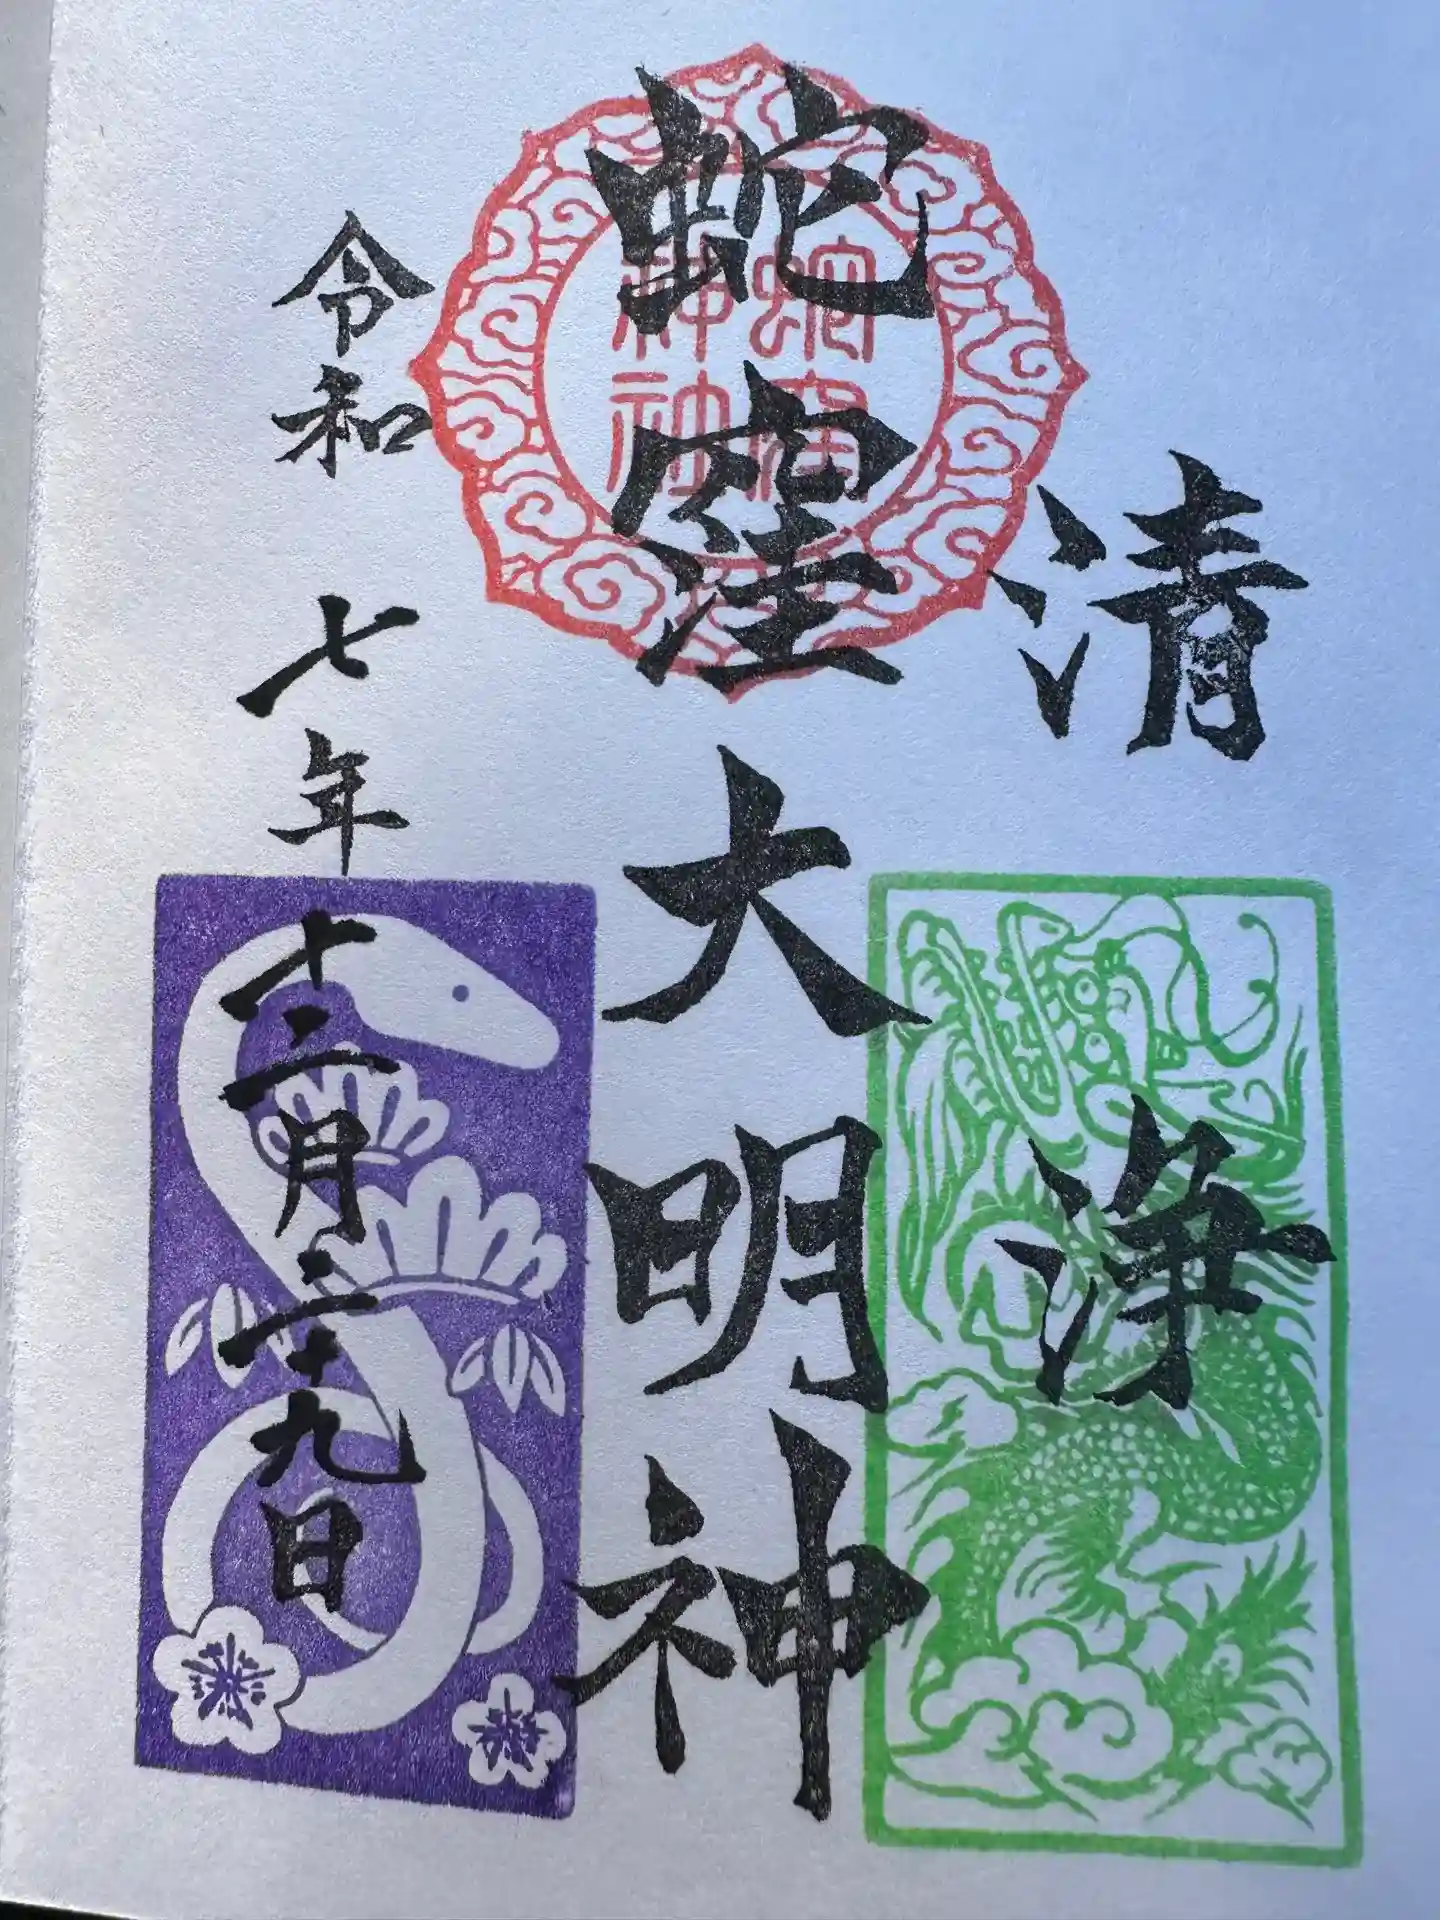 清浄
蛇窪大明神
蛇窪神社
令和七年十二月二十九日